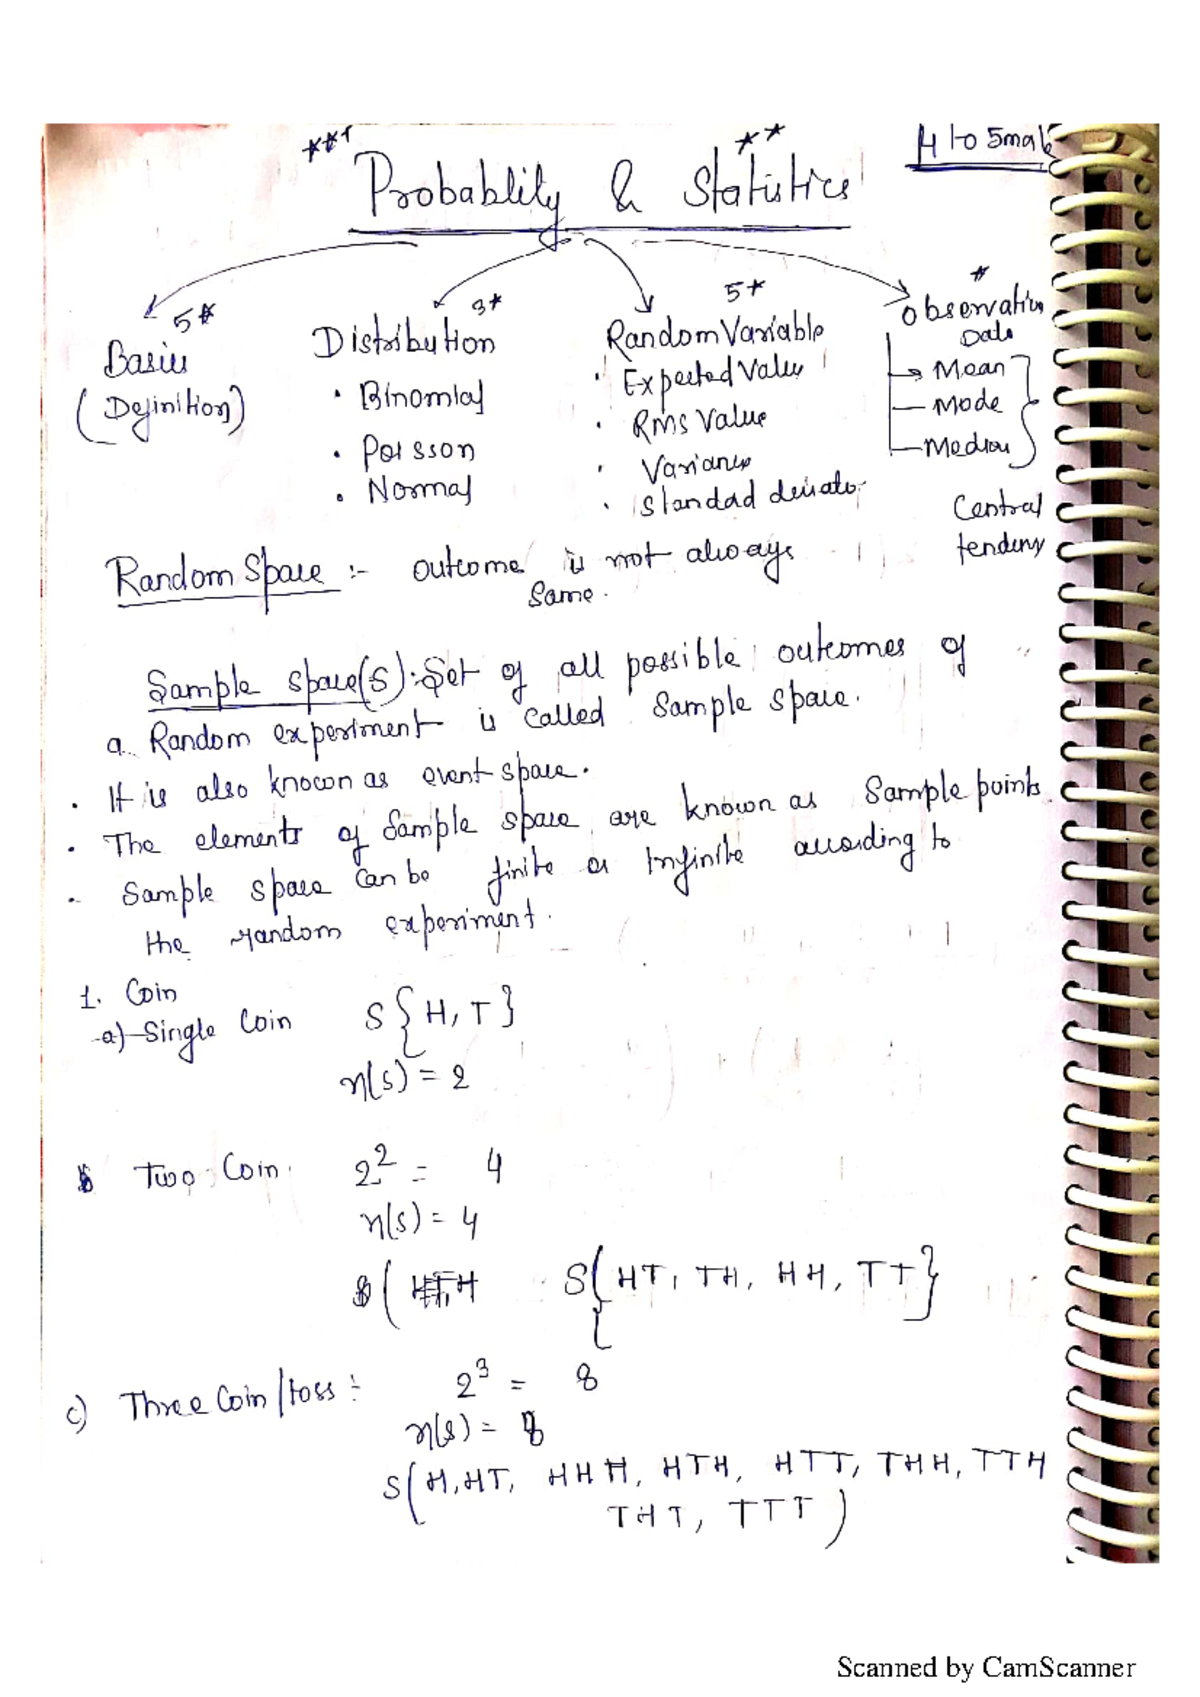 ***
**
4 to 5 mak
Probablity & Statistics
5*
3*
5*
*
Basics
(Definition)
Distribution
• Binomial
• Poisson
• Normal
Random Variable
• Expected Value
• Rms Value
• Variance
• Standad deviato
Observation
Data
Mean
Mode
Median
Central
tendency
Random Space :- outcome is not always
Same.
Sample space(S) :- Set of all possible outcomes of
a Random experiment is called Sample space.
• It is also known as event space.
• The elements of Sample space are known as Sample points.
• Sample space can be finite or Infinite according to
the random experiment.
1. Coin
a) Single Coin S { H, T }
n(s) = 2
b Two Coin. 2² = 4
n(s) = 4
S{ HT, TH, HH, TT }
c) Three Coin/toss :- 2³ = 8
n(s) = 8
S( H,HT, HHH, HTH, HTT, THH, TTH
THT, TTT )
Scanned by CamScanner